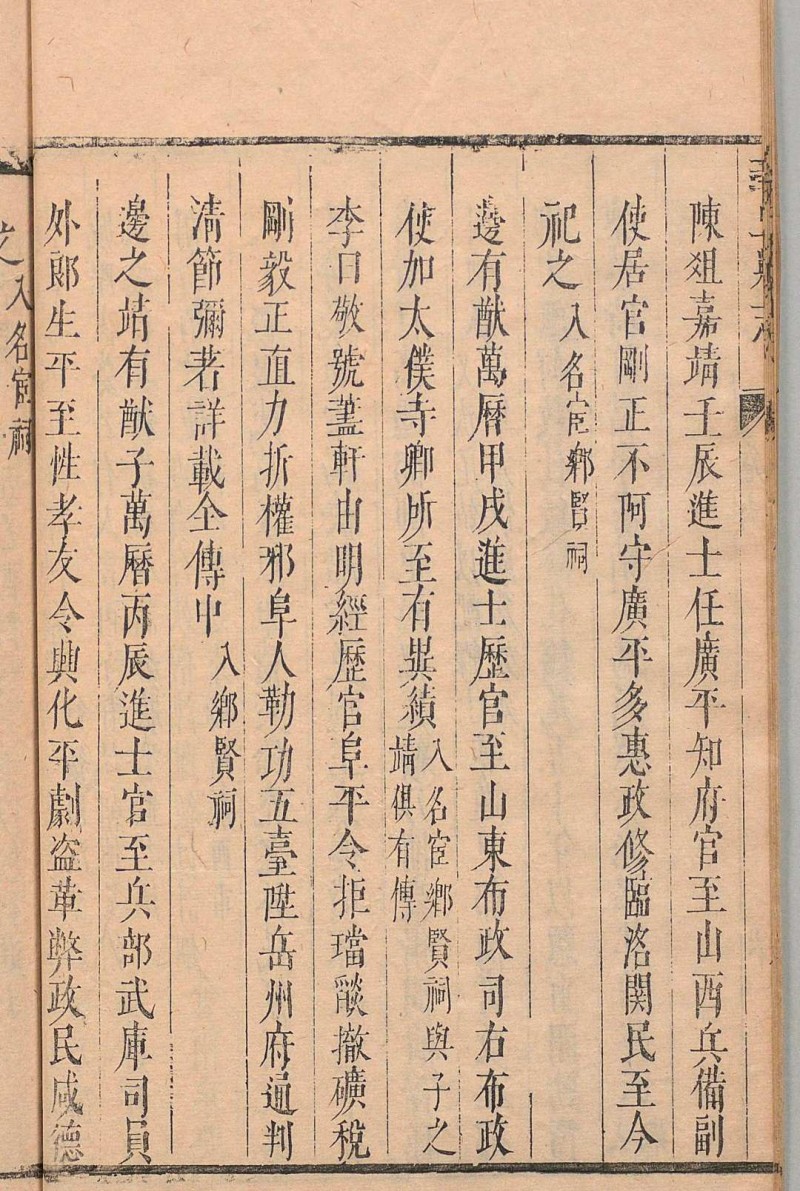 陳俎嘉靖壬辰進士任廣平知府官至山西兵備副
使居官剛正不阿守廣平多惠政修臨洺關民至今
祀之入名宦鄉賢祠
邊有猷萬曆甲戌進士歷官至山東布政司右布政
使加太僕寺卿所至有異績入名宦鄉賢祠與子之
靖俱有傳
李日敬號藎軒由明經歷官阜平令拒璫燄撤礦稅
剛毅正直力折權邪阜人勒功五臺陞岳州府通判
清節彌著詳載全傳中入鄉賢祠
邊之靖有猷子萬曆丙辰進士官至兵部武庫司員
外郎生平至性孝友令興化平劇盜革弊政民咸德
之入名宦祠